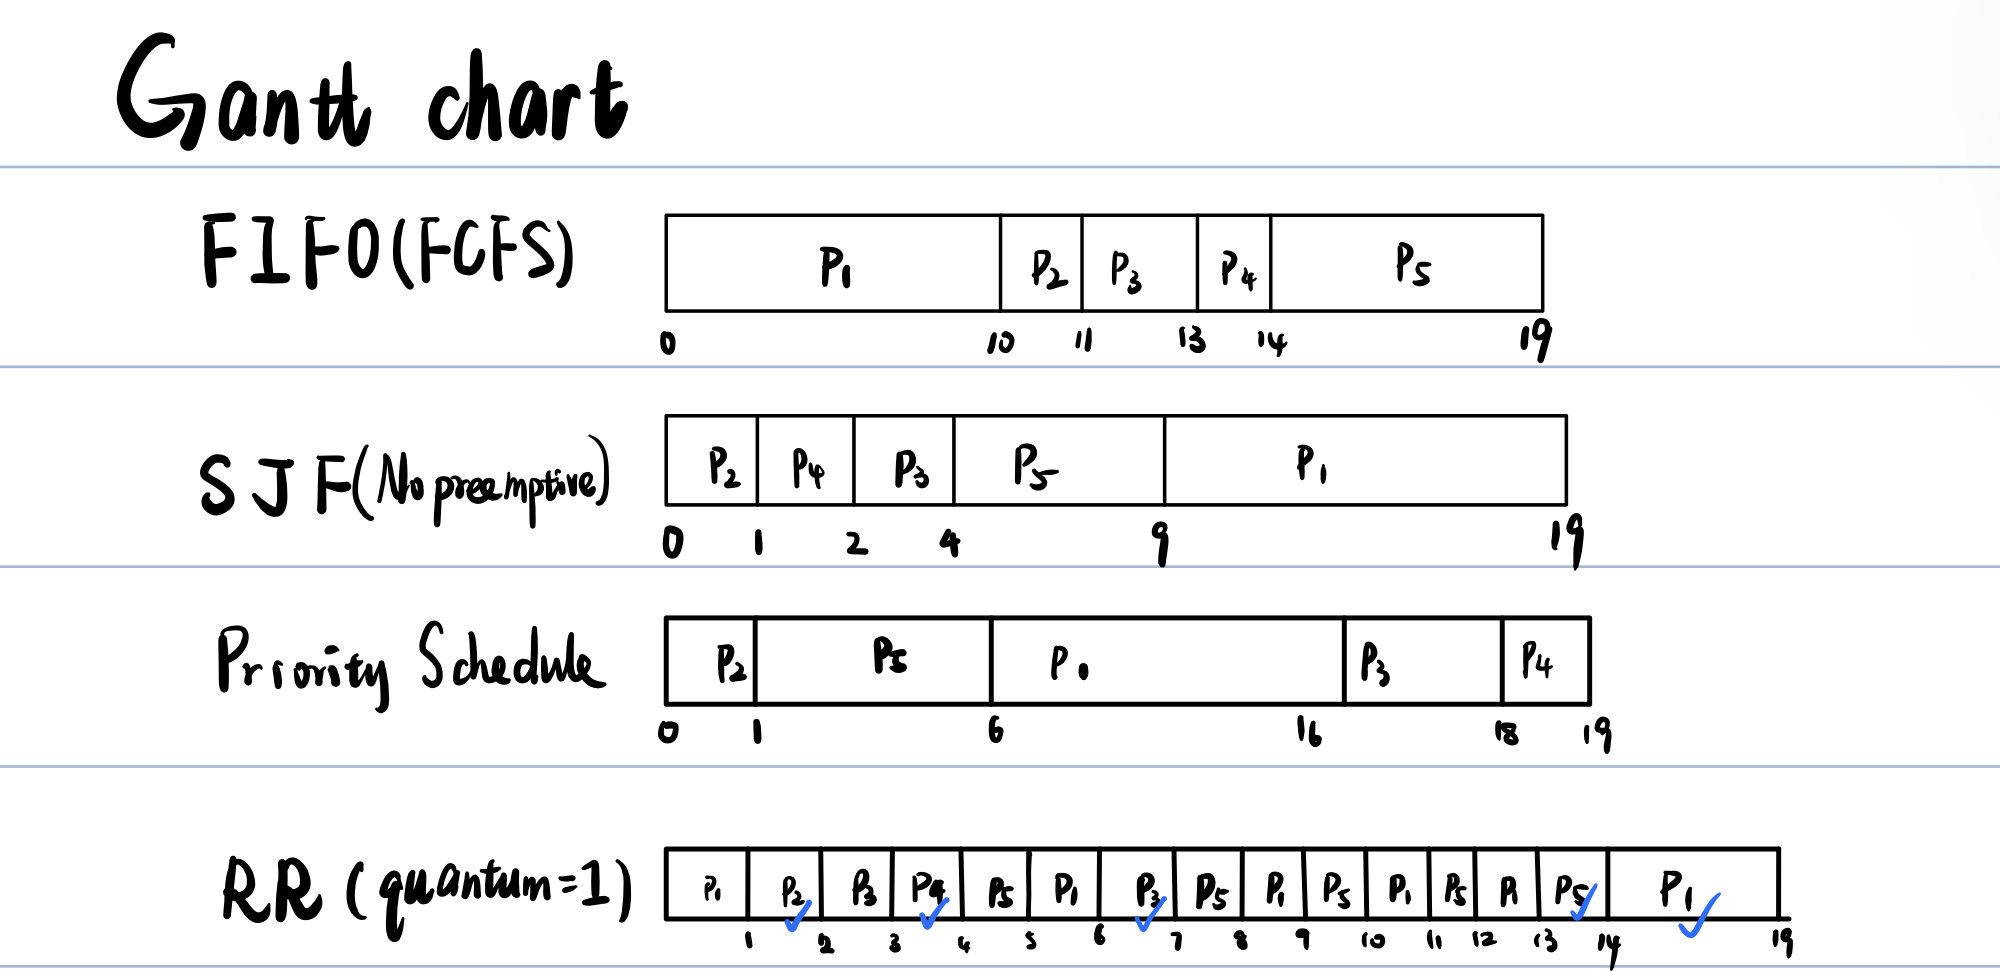 Gantt chart
FIFO(FCFS)
P1 P2 P3 P4 P5
0 10 11 13 14 19
SJF(No preemptive)
P2 P4 P3 P5 P1
0 1 2 4 9 19
Priority Schedule
P2 P5 P1 P3 P4
0 1 6 16 18 19
RR (quantum=1)
P1 P2 P3 P4 P5 P1 P3 P5 P1 P5 P1 P5 P1 P5 P1
1 2 3 4 5 6 7 8 9 10 11 12 13 14 19